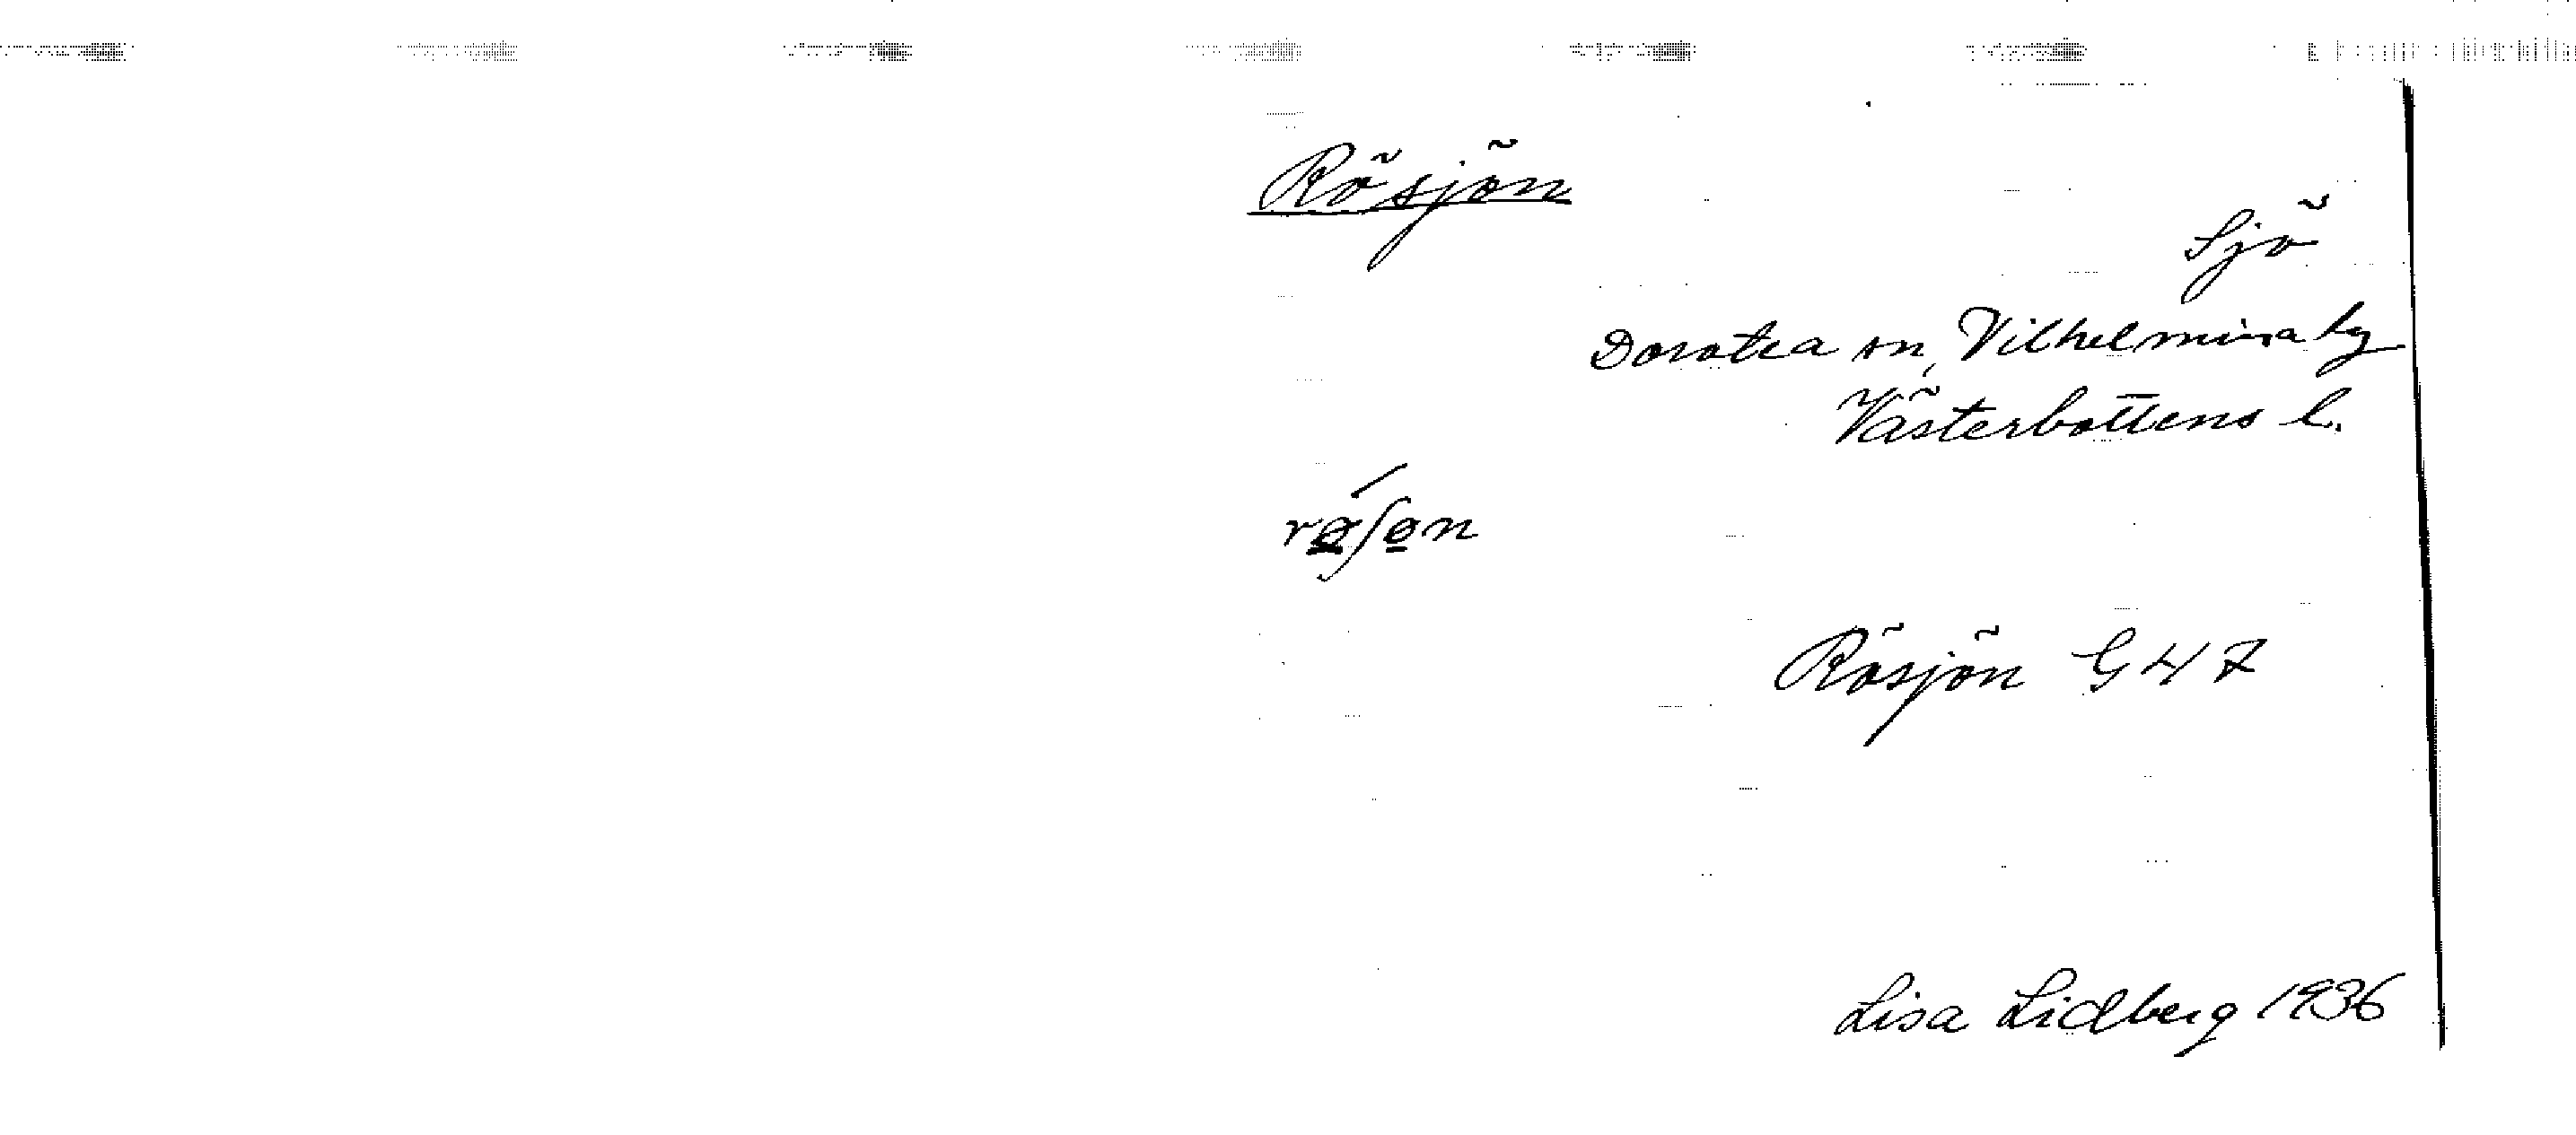 Rösjön
Sjö
Dorotea sn, Vilhelmina lg
Västerbottens l.
Rösjön G 47
Lisa Lidberg 1936